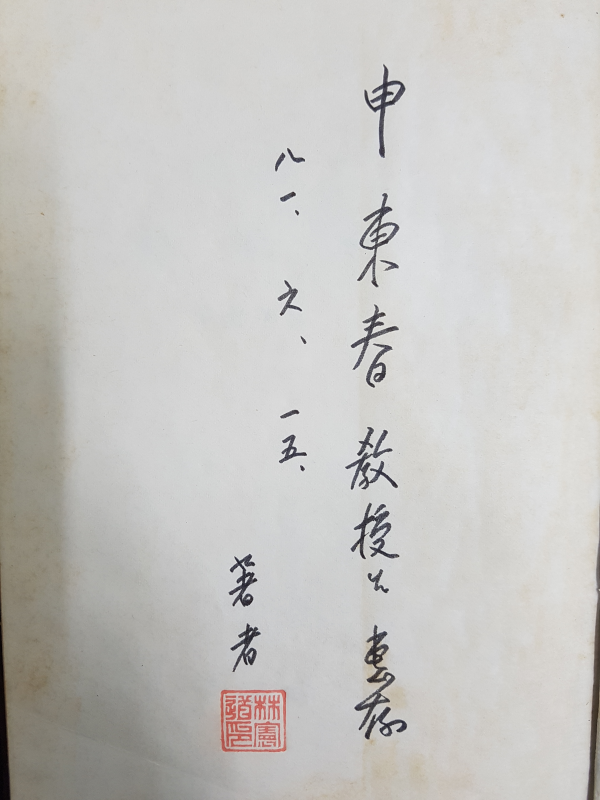 申東春 教授 惠存
八一、六、一五、
著者
林憲
道印